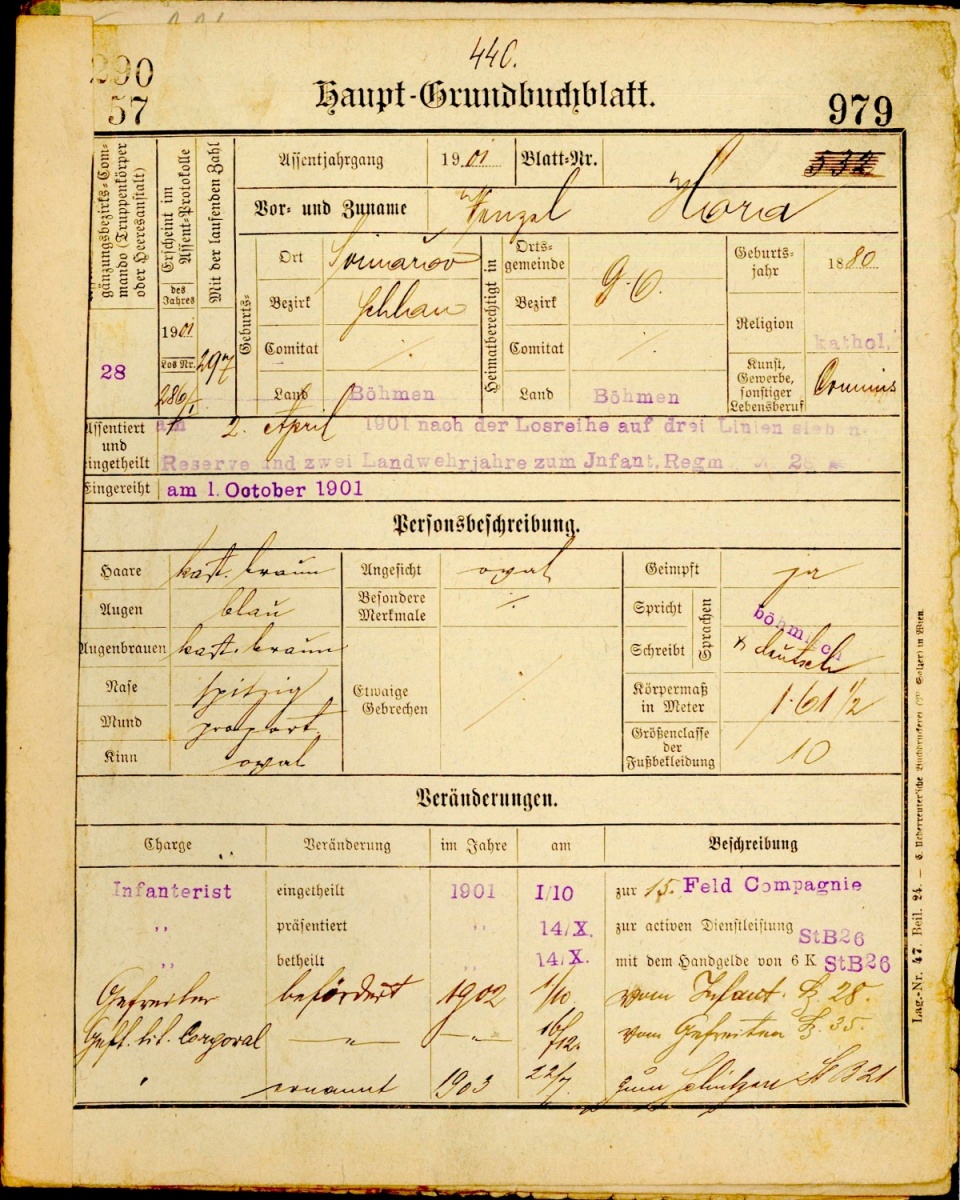 440.
290
57
Haupt-Grundbuchblatt.
979
gänzungsbezirks-Com-
mando (Truppenkörper
oder Heeresanstalt)
28
Erscheint im
Assent-Protokolle
des
Jahres
1901
Los Nr.
286/I
Mit der laufenden Zahl
297
Assentjahrgang 1901 Blatt-Nr. 532
Vor- und Zuname Wenzel Hora
Geburts-
Ort
Bezirk Schlan
Comitat ./.
Land Böhmen
Heimatberechtigt in
Orts-
gemeinde
Bezirk
g. O.
Comitat ./.
Land Böhmen
Geburts-
jahr 1880
Religion kathol.
Kunst,
Gewerbe,
sonstiger
Lebensberuf Commis
Assentiert
und
eingetheilt
am 2. April 1901 nach der Losreihe auf drei Linien sieben
Reserve und zwei Landwehrjahre zum Jnfant. Regm N 28
Eingereiht am 1. October 1901
Personsbeschreibung.
Haare kast. braun
Augen blau
Augenbrauen kast. braun
Nase spitzig
Mund proport.
Kinn oval
Angesicht oval
Besondere
Merkmale ./.
Etwaige
Gebrechen ./.
Geimpft ja
Spricht
Schreibt
Sprachen
böhmisch
deutsch
Körpermaß
in Meter 1·61 1/2
Größenclasse
der
Fußbekleidung 10
Veränderungen.
Charge Veränderung im Jahre am Beschreibung
Infanterist eingetheilt 1901 I/10 zur 15. Feld Compagnie
,, präsentiert ,, 14/X. zur activen Dienstleistung StB26
,, betheilt ,, 14/X. mit dem Handgelde von 6 K StB26
Gefreiter befördert 1902 1/10 vom Infant. 28.
Gefr. tit. Corporal —〃— —〃— 16/12. vom Gefreiten 35.
〃 ernannt 1903 22/7. zum Schützen StB 21
Lag.-Nr. 47. Beil. 24. — C. Ueberreuter'sche Buchdruckerei (M. Salzer) in Wien.